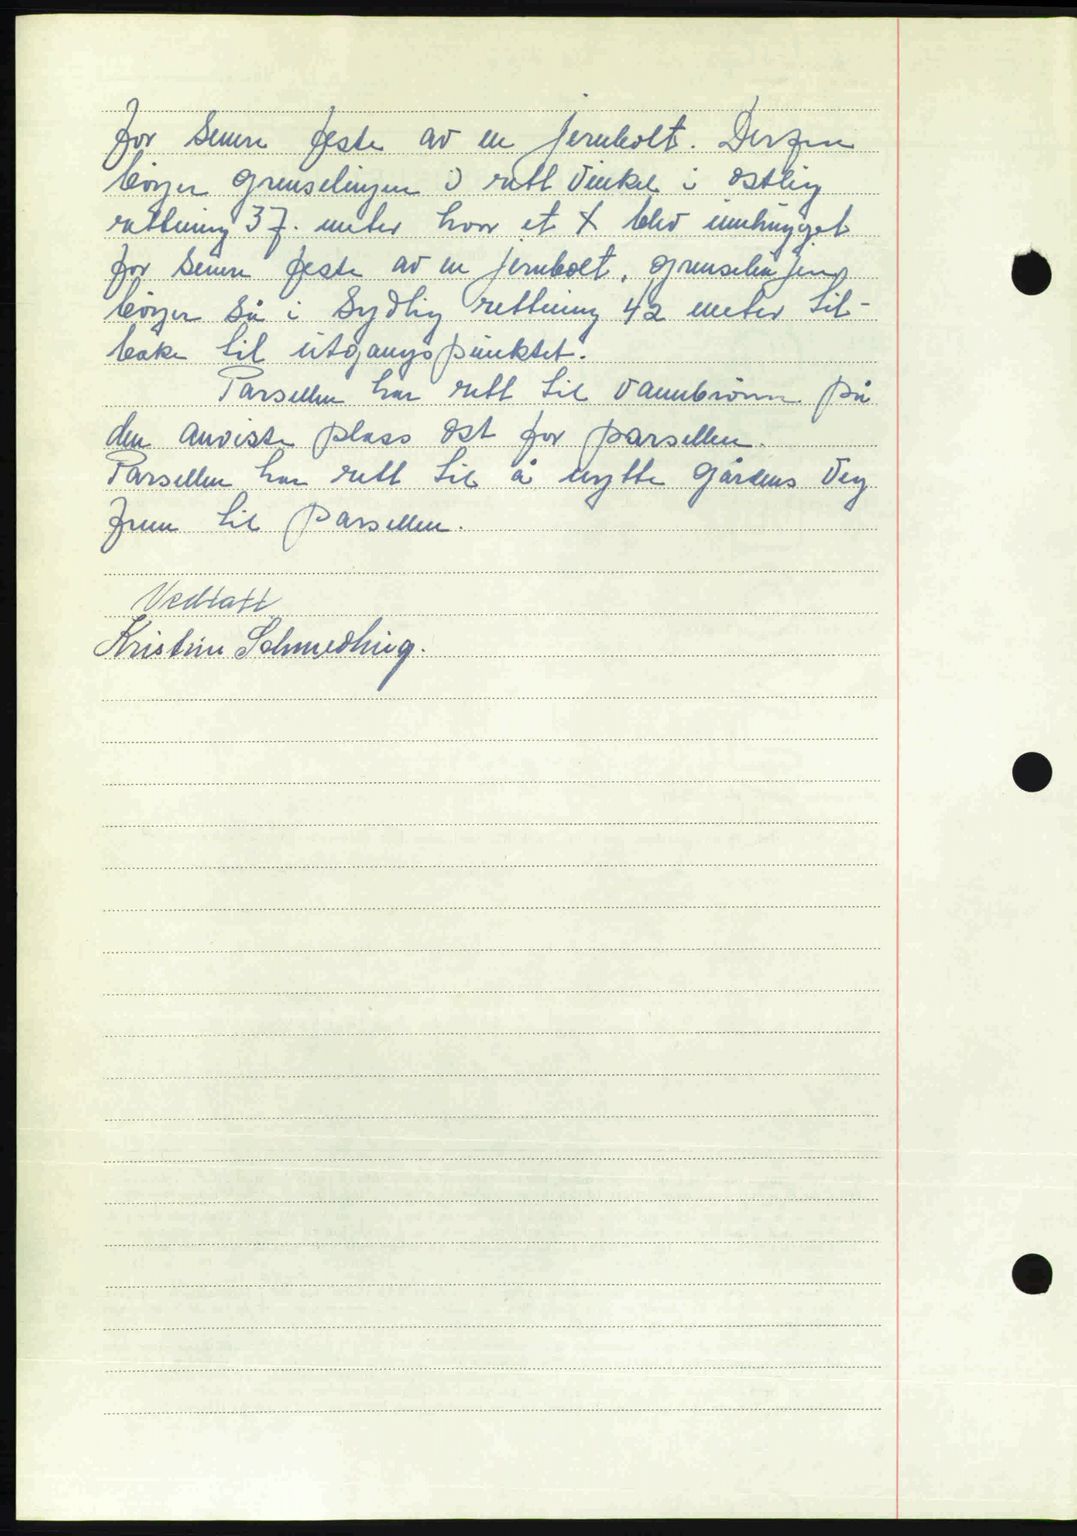 for senere feste av en jernbolt. Derfra
böyer grenselinjen i rett vinkel i östlig
rettning 37. meter hvor et X blev innhugget
for senere feste av en jernbolt, grenselinjen
böyer så i sydlig rettning 42 meter til-
bake til utgangspunktet.
Parsellen har rett til vannbrönn på
den anviste plass öst for parsellen.
Parsellen har rett til å nytte gårdens vey
frem til parsellen.
Vedtatt
Kristine Schmedling.